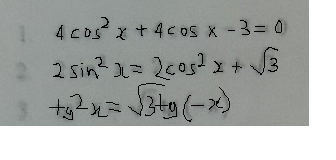 1 4cos²x + 4cos x - 3 = 0
2 2sin²x = 2cos²x + √3
3 tg²x = √3tg(-x)